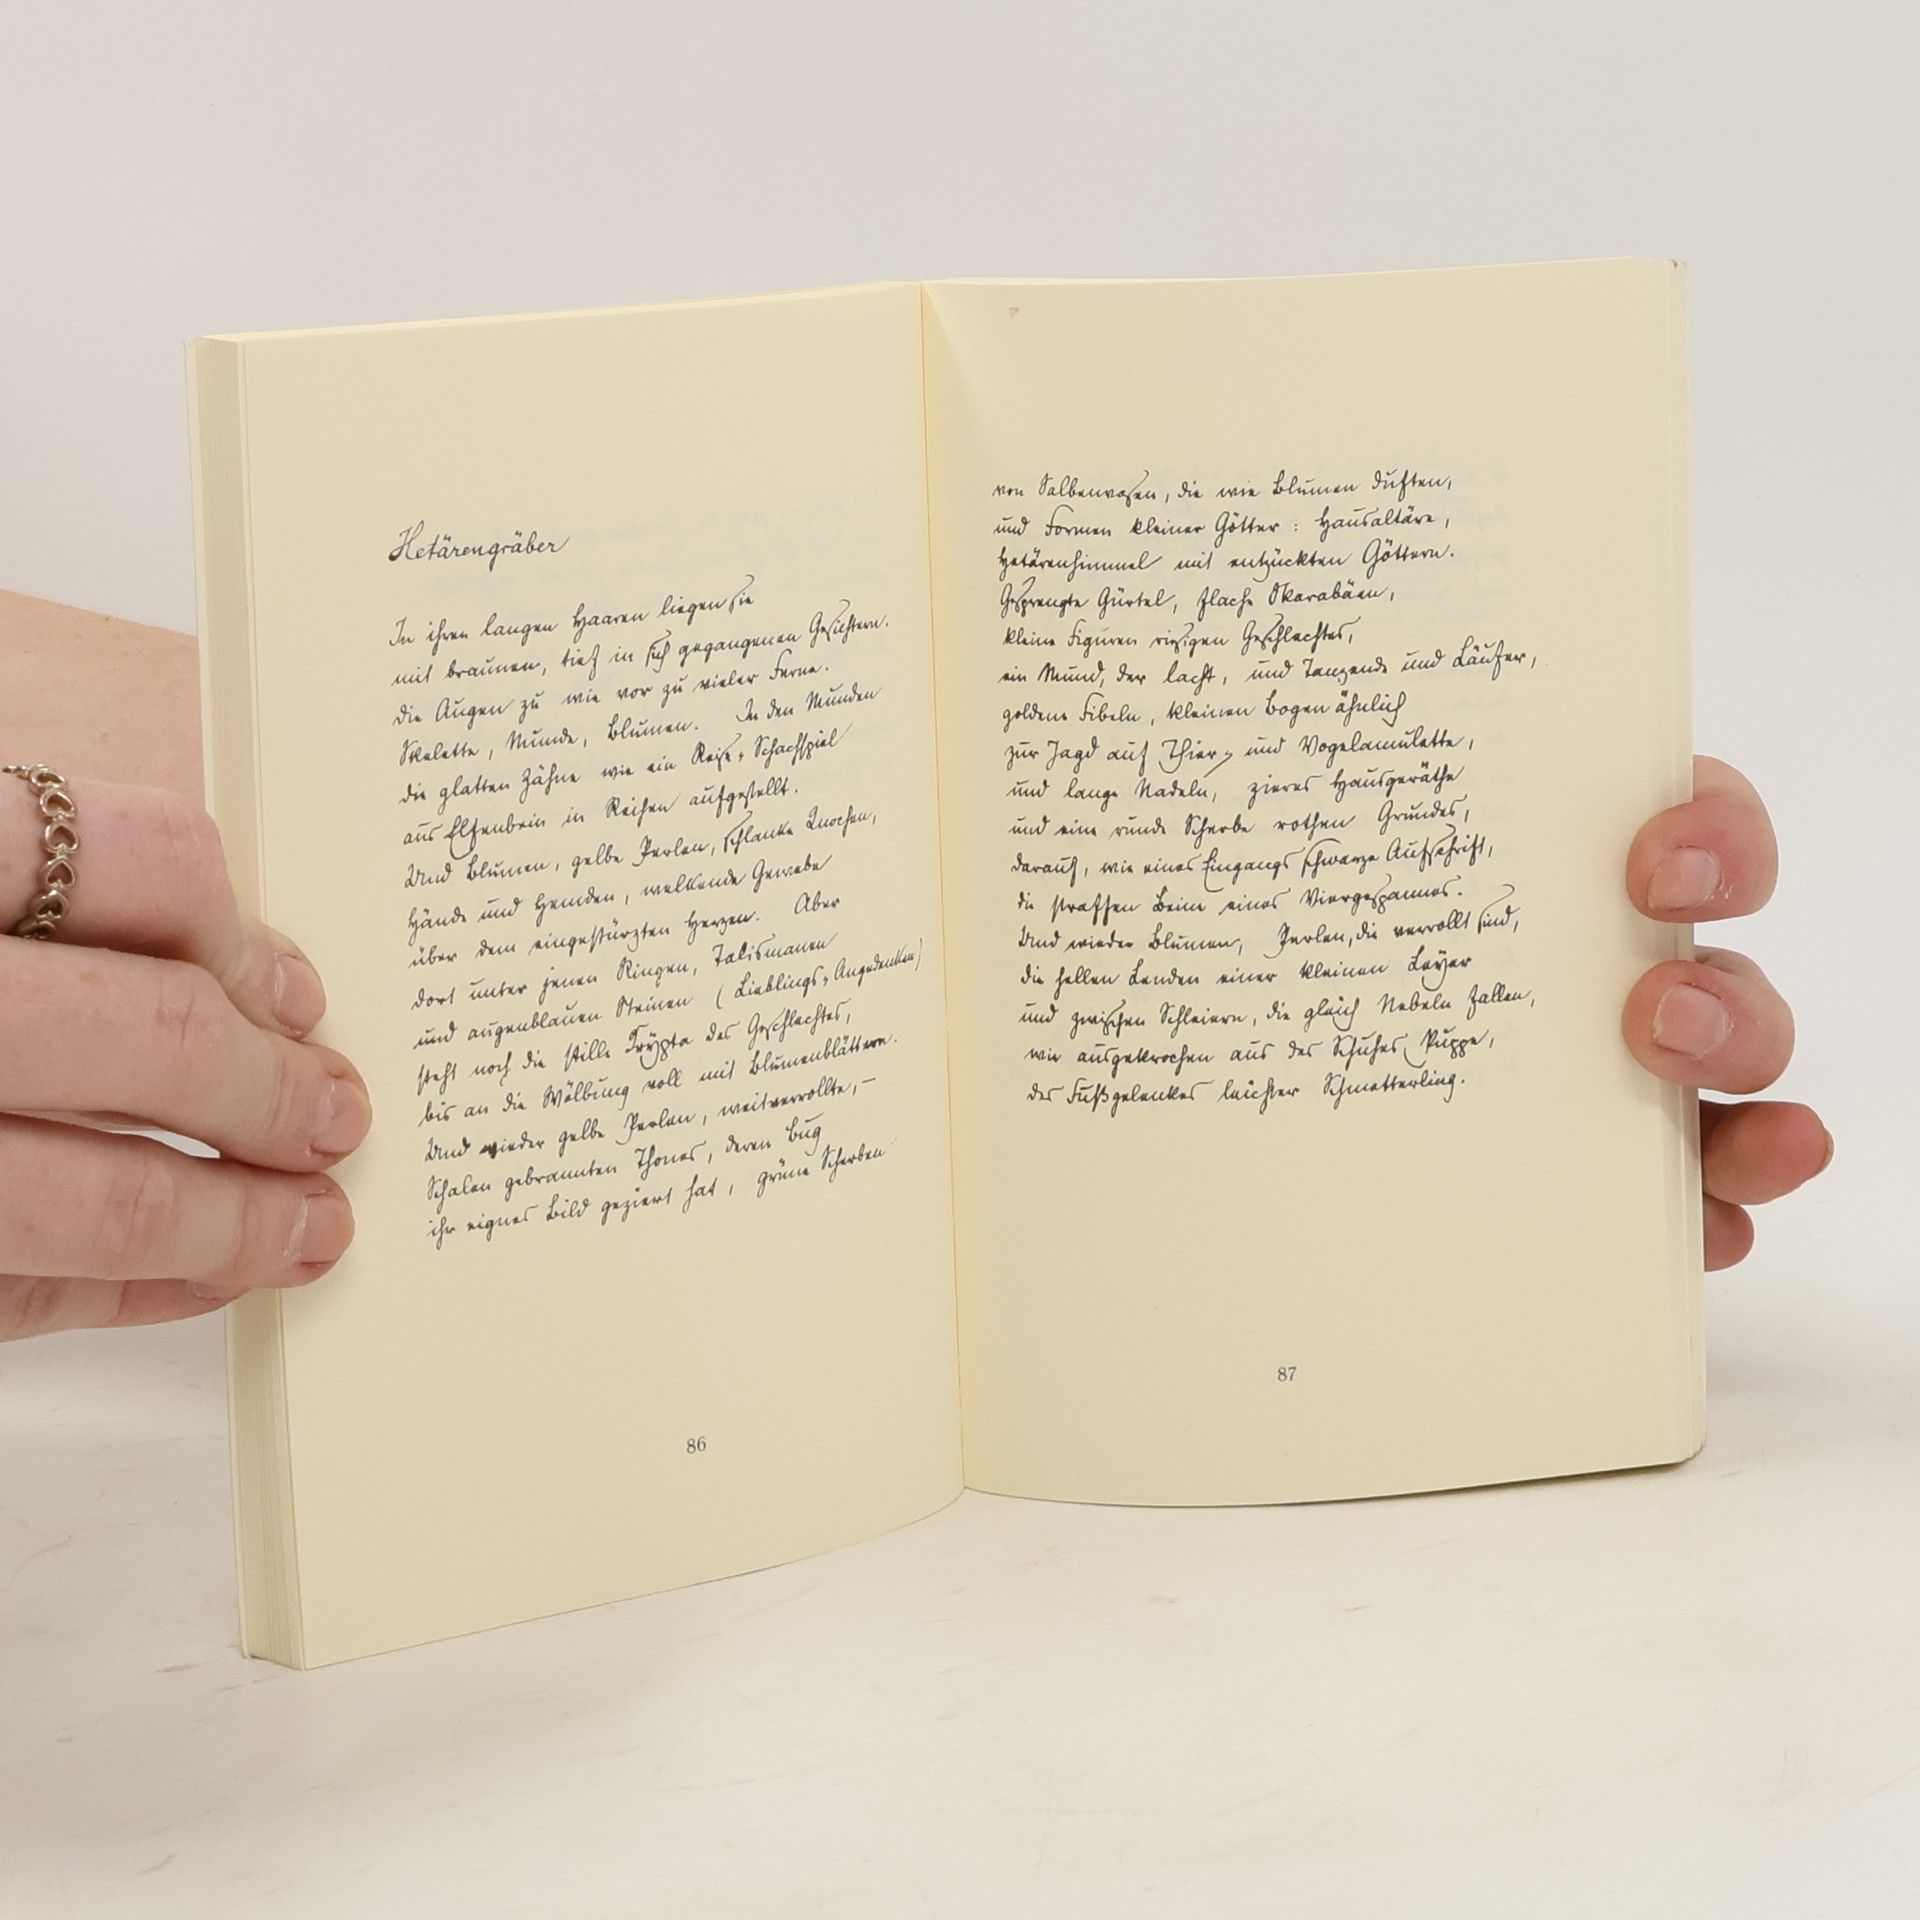 Hetärengräber
In ihren langen Haaren liegen sie
mit braunen, tief in sich gegangenen Gesichtern.
Die Augen zu wie vor zu vieler Ferne.
Skelette, Munde, Blumen. In den Munden
die glatten Zähne wie ein Reise-Schachspiel
aus Elfenbein in Reihen aufgestellt.
Und Blumen, gelbe Perlen, schlanke Knochen,
Hände und Hemden, welkende Gewebe
über dem eingestürzten Herzen. Aber
dort unter jenen Ringen, Talismanen
und augenblauen Steinen (Lieblings-Angedenken)
steht noch die stille Krypta des Geschlechtes,
bis an die Wölbung voll mit Blumenblättern.
Und wieder gelbe Perlen, weitverrollte, –
Schalen gebrannten Thones, deren Bug
ihr eignes Bild geziert hat, grüne Scherben
86
von Salbenvasen, die wie Blumen duften,
und Formen kleiner Götter: Hausaltäre,
Hetärenhimmel mit entzückten Göttern.
Gesprengte Gürtel, flache Skarabäen,
kleine Figuren riesigen Geschlechtes,
ein Mund, der lacht, und Tanzende und Läufer,
goldene Fibeln, kleinen Bogen ähnlich
zur Jagd auf Thier- und Vogelamulette,
und lange Nadeln, zieres Hausgeräthe
und eine runde Scherbe rothen Grundes,
darauf, wie eines Eingangs schwarze Aufschrift,
die straffen Beine eines Viergespannes.
Und wieder Blumen, Perlen, die verrollt sind,
die hellen Lenden einer kleinen Leyer
und zwischen Schleiern, die gleich Nebeln fallen,
wie ausgekrochen aus des Schuhes Puppe,
des Fußgelenkes leichter Schmetterling.
87